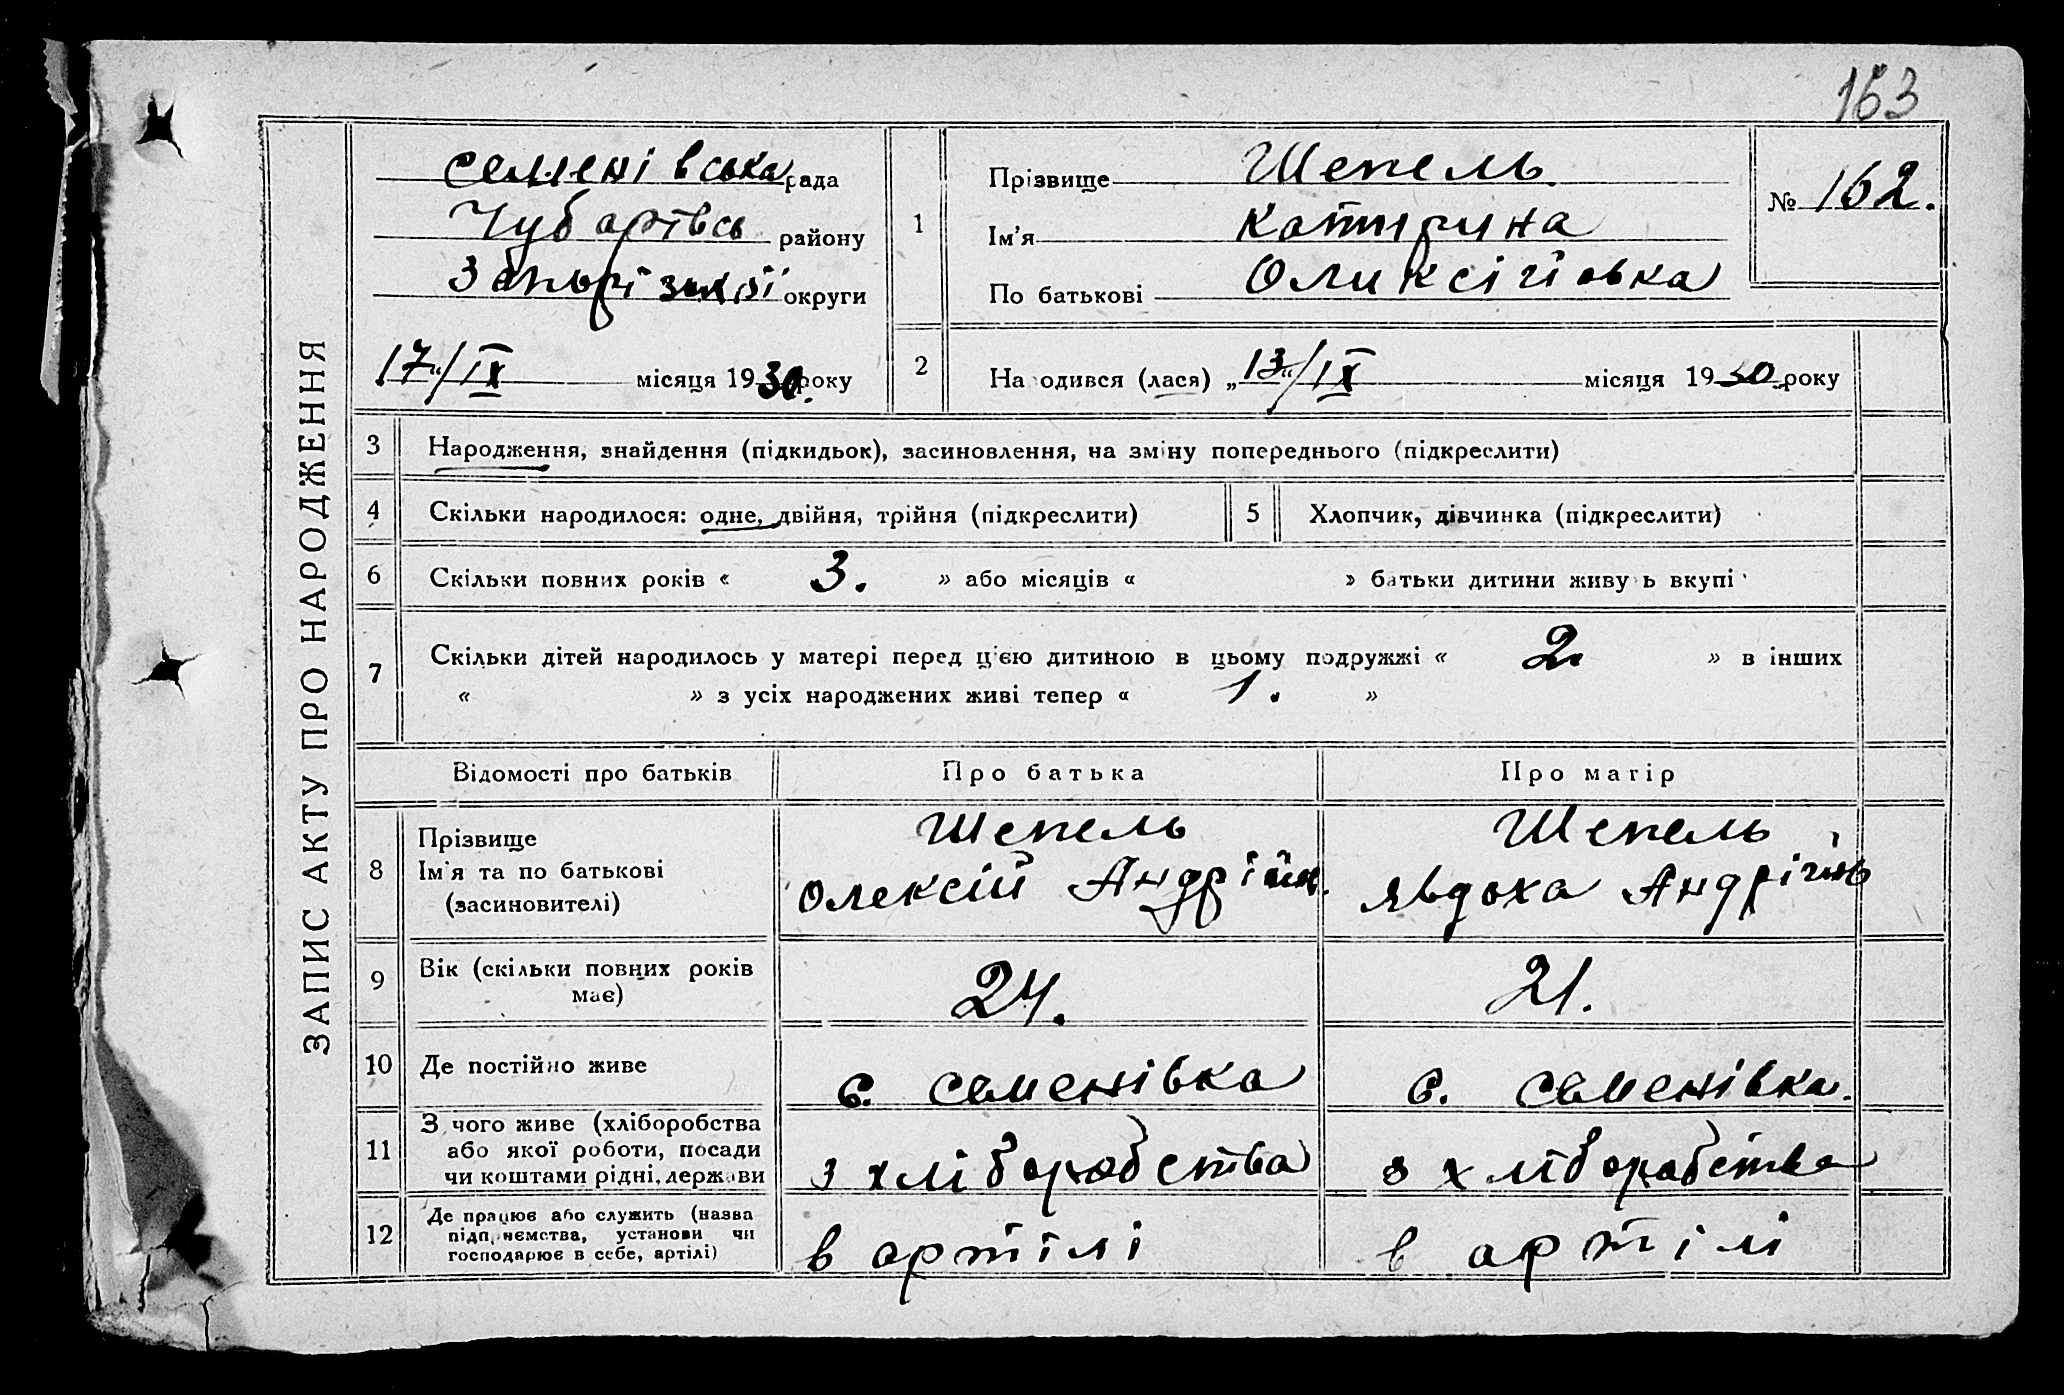 163
ЗАПИС АКТУ ПРО НАРОДЖЕННЯ
Семенівська рада
Чубарівсь району
Запорізької округи
17/IX місяця 1930 року
1
Прізвище Шепель
Ім'я Катирина
По батькові Оликсіївка
№ 162.
2
На одився (лася) „13“/IX місяця 1930 року
3 Народження, знайдення (підкидьок), засиновлення, на зміну попереднього (підкреслити)
4 Скільки народилося: одне, двійня, трійня (підкреслити)
5 Хлопчик, дівчинка (підкреслити)
6 Скільки повних років « 3. » або місяців « » батьки дитини живу ь вкупі
7 Скільки дітей народилось у матері перед ц'єю дитиною в цьому подружжі « 2. » в інших
« » з усіх народжених живі тепер « 1. »
Відомості про батьків Про батька Про матір
8 Прізвище
Ім'я та по батькові
(засиновителі)
Шепель
Олексій Андрійв.
Шепель
Явдоха Андріївн
9 Вік (скільки повних років
має)
24.
21.
10 Де постійно живе
с. Семенівка
с. Семенівка.
11 З чого живе (хліборобства
або якої роботи, посади
чи коштами рідні, держави
з хліборобства
з хліборобства
12 Де працює або служить (назва
підприємства, установи чи
господарює в себе, артілі)
в артілі
в артілі